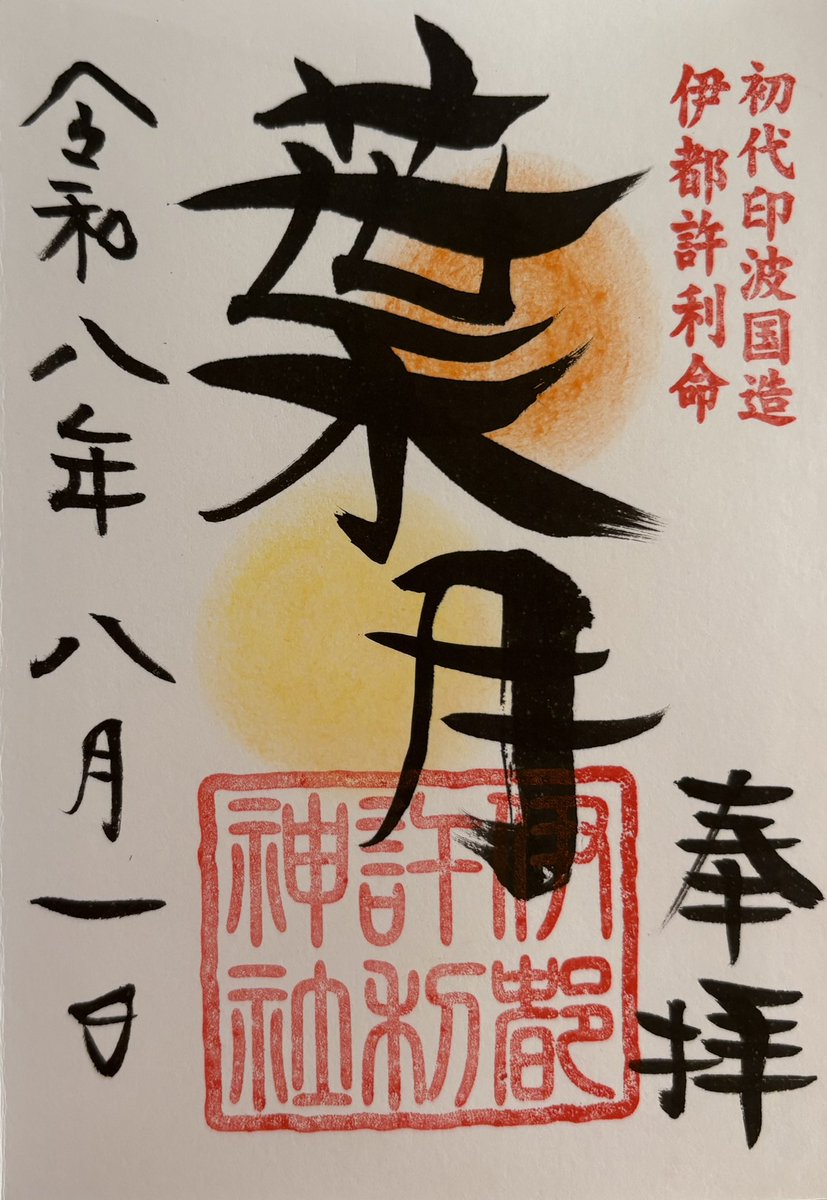 初代印波国造
伊都許利命
奉拝
葉月
伊都
許利
神社
令和八年八月一日